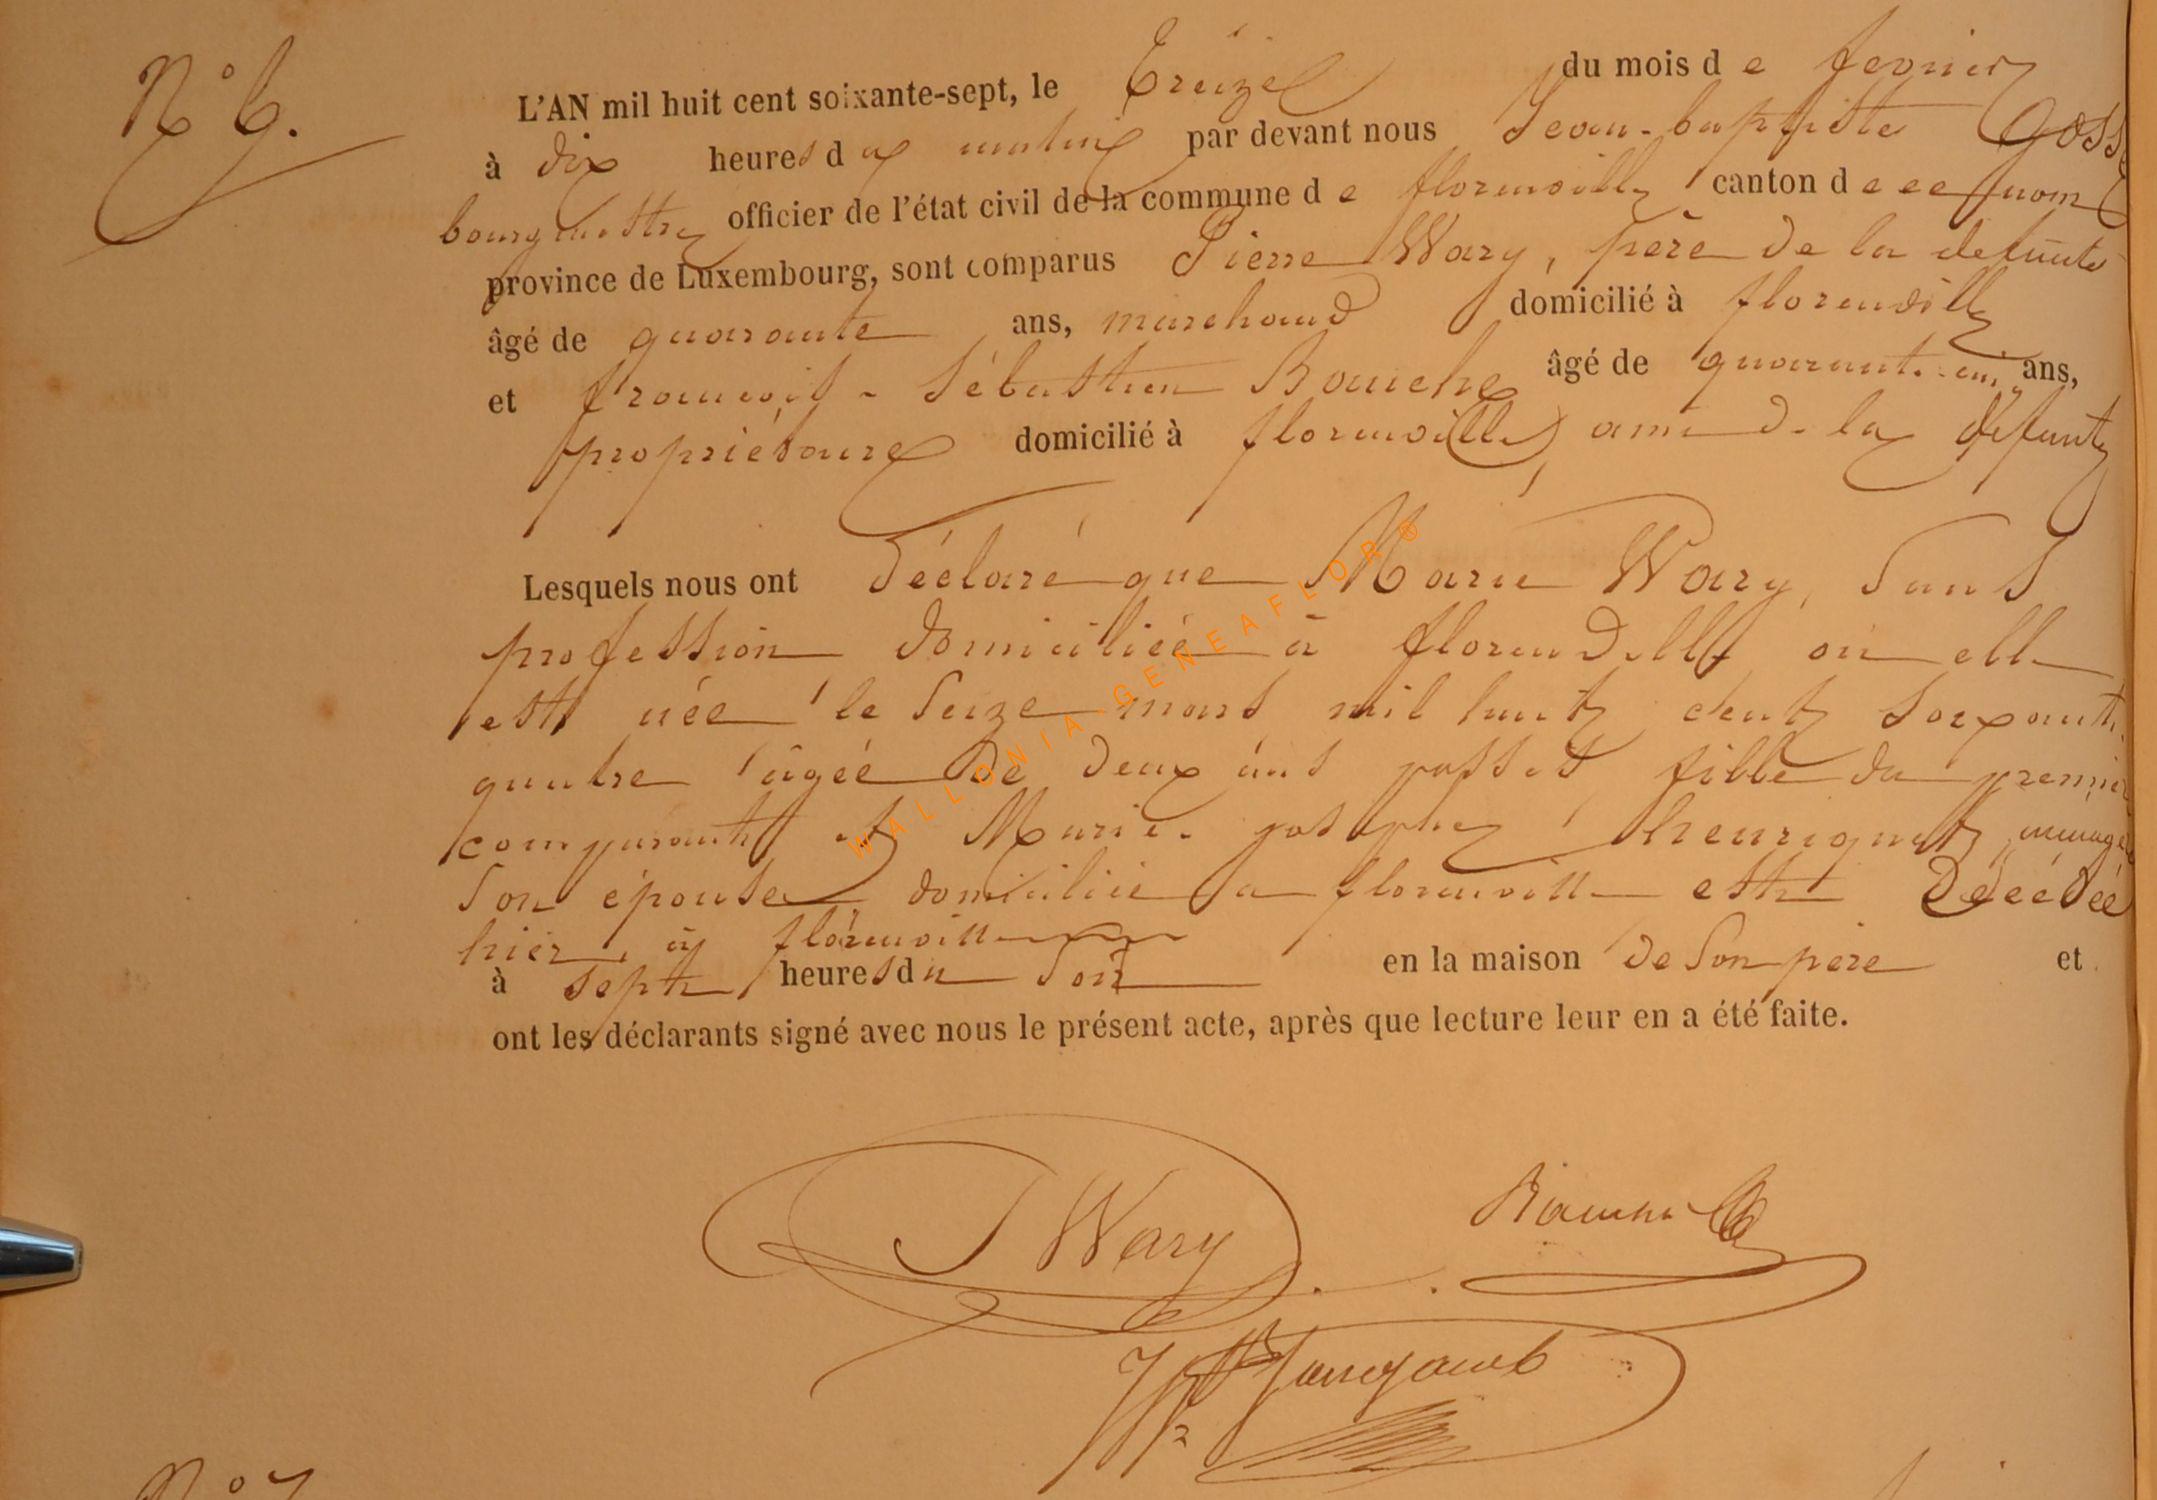 N° 6.
L'AN mil huit cent soixante-sept, le treize du mois de fevrier
à dix heures du matin par devant nous Jean-baptiste
bourgmestre officier de l'état civil de la commune de florenville canton de ce nom
province de Luxembourg, sont comparus Pierre Wary, père de la defunte
âgé de quarante ans, marchand domicilié à florenville
et francois-Sébastien Bouché âgé de quarante-un ans,
propriétaire domicilié à florenville, ami de la défunte
Lesquels nous ont déclaré que Marie Wary, sans
profession domiciliée à florenville où elle
est née le seize mars mil huit cent soixante
quatre âgée de deux ans passés fille du premier
comparant et Marie-josephe henriquet, ménagère
son épouse domiciliée a florenville est décédée
hier, à florenville
à sept heures du soir en la maison de son père et
ont les déclarants signé avec nous le présent acte, après que lecture leur en a été faite.
Wary
WALLONIA-GENEAFLOR®
N° 7